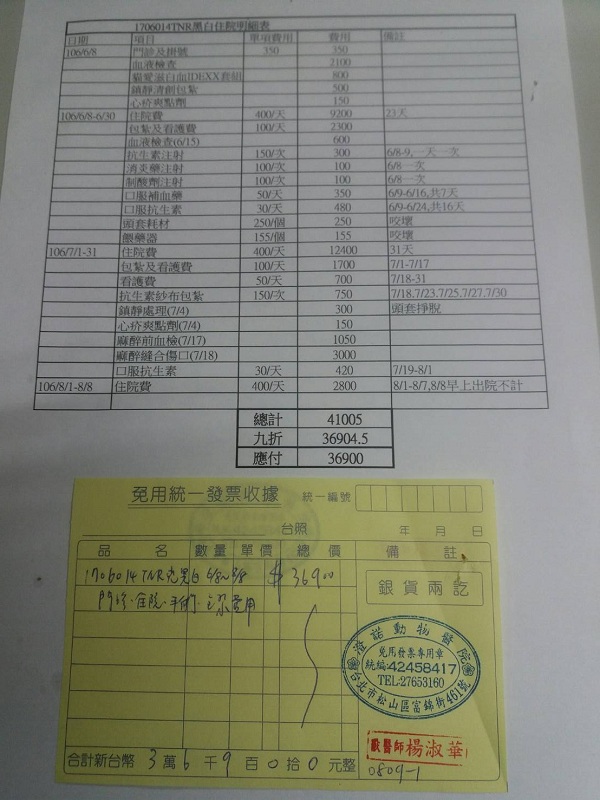 1706014TNR黑白住院明細表
日期 項目 單項費用 費用 備註
106/6/8 門診及掛號 350 350
血液檢查 2100
貓愛滋白血IDEXX套組 800
鎮靜清創包紮 500
心疥爽點劑 150
106/6/8-6/30 住院費 400/天 9200 23天
包紮及看護費 100/天 2300
血液檢查(6/15) 600
抗生素注射 150/次 300 6/8-9,一天一次
消炎藥注射 100/次 100 6/8一次
制酸劑注射 100/次 100 6/8一次
口服補血藥 50/天 350 6/9-6/16,共7天
口服抗生素 30/天 480 6/9-6/24,共16天
頭套耗材 250/個 250 咬壞
餵藥器 155/個 155 咬壞
106/7/1-31 住院費 400/天 12400 31天
包紮及看護費 100/天 1700 7/1-7/17
看護費 50/天 700 7/18-31
抗生素紗布包紮 150/次 750 7/18.7/23.7/25.7/27.7/30
鎮靜處理(7/4) 300 頭套掙脫
心疥爽點劑(7/4) 150
麻醉前血檢(7/17) 1050
麻醉縫合傷口(7/18) 3000
口服抗生素 30/天 420 7/19-8/1
106/8/1-8/8 住院費 400/天 2800 8/1-8/7,8/8早上出院不計
總計 41005
九折 36904.5
應付 36900
免用統一發票收據 統一編號
台照 年 月 日
品 名 數量 單價 總 價 備 註
1706014 TNR 黑白 6/8~8/8 $36900
銀貨兩訖
門診、住院、手術 費用
澄諾動物醫院
免用發票專用章
統編:42458417
TEL:27653160
台北市松山區富錦街461號
獸醫師 楊淑華
合計新台幣 3 萬 6 千 9 百 0 拾 0 元整
0809-1